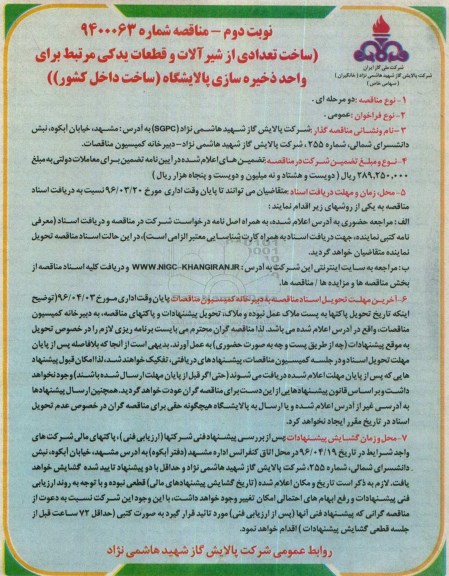 نوبت دوم - مناقصه شماره ۹۴۰۰۰۶۳
(ساخت تعدادی از شیرآلات و قطعات یدکی مرتبط برای
واحد ذخیره سازی پالایشگاه (ساخت داخل کشور))
شرکت ملی گاز ایران
شرکت پالایش گاز شهید هاشمی نژاد (خانگیران)
(سهامی خاص)
۱- نوع مناقصه: دو مرحله ای.
۲- نوع فراخوان: عمومی.
۳- نام ونشانی مناقصه گذار: شرکت پالایش گاز شهید هاشمی نژاد (SGPC) به آدرس: مشهد، خیابان آبکوه، نبش
دانشسرای شمالی، شماره ۲۵۵، شرکت پالایش گاز شهید هاشمی نژاد- دبیرخانه کمیسیون مناقصات.
۴- نوع و مبلغ تضمین شرکت در مناقصه: تضمین های اعلام شده در آیین نامه تضمین برای معاملات دولتی به مبلغ
۲۸۹,۲۵۰,۰۰۰ ریال (دویست و هشتاد و نه میلیون و دویست و پنجاه هزار ریال)
۵- محل، زمان و مهلت دریافت اسناد: متقاضیان می توانند تا پایان وقت اداری مورخ ۹۶/۰۳/۲۰ نسبت به دریافت اسناد
مناقصه به یکی از روشهای زیر اقدام نمایند:
الف: مراجعه حضوری به آدرس اعلام شده، به همراه اصل نامه درخواست شرکت در مناقصه و دریافت اسناد (معرفی
نامه کتبی نماینده، جهت دریافت اسناد به همراه کارت شناسایی معتبر الزامی است)، در این حالت اسناد مناقصه تحویل
نماینده متقاضیان خواهد گردید.
ب: مراجعه به سایت اینترنتی این شرکت به آدرس: WWW.NIGC-KHANGIRAN.IR و دریافت کلیه اسناد مناقصه از
بخش مناقصه ها و مزایده ها / مناقصه ها.
۶- آخرین مهلت تحویل اسناد مناقصه به دبیرخانه کمیسیون مناقصات: پایان وقت اداری مورخ ۹۶/۰۴/۰۳ (توضیح
اینکه تاریخ تحویل پاکتها به پست ملاک عمل نبوده و ملاک، تحویل پیشنهادات و پاکتهای مناقصه، به دبیرخانه کمیسیون
مناقصات، واقع در آدرس اعلام شده می باشد. لذا مناقصه گران محترم می بایست برنامه ریزی لازم را در خصوص تحویل
به موقع پیشنهادات (چه از طریق پست و چه به صورت حضوری) به عمل آورند. بدیهی است از آنجا که بلافاصله پس از پایان
مهلت تحویل اسناد و در جلسه کمیسیون مناقصات، پیشنهادهای دریافتی، تفکیک خواهند شد، لذا امکان قبول پیشنهاد
هایی که پس از پایان مهلت اعلام شده دریافت می شوند (حتی اگر قبل از پایان مهلت ارسال شده باشند) وجود نخواهد
داشت و بر اساس قانون پیشنهادهایی از این دست برای مناقصه گران عودت خواهد گردید. همچنین ارسال پیشنهادها
به آدرسی غیر از آدرس اعلام شده و یا ارسال به پالایشگاه هیچگونه حقی برای مناقصه گران در خصوص عدم تحویل
اسناد در تاریخ مقرر ایجاد نخواهد کرد.
۷- محل و زمان گشایش پیشنهادات: پس از بررسی پیشنهاد فنی شرکتها (ارزیابی فنی)، پاکتهای مالی شرکت های
واجد شرایط در تاریخ ۹۶/۰۴/۱۹ در محل اتاق کنفرانس اداره مشهد (دفتر آبکوه) به آدرس مشهد، خیابان آبکوه، نبش
دانشسرای شمالی، شماره ۲۵۵، شرکت پالایش گاز شهید هاشمی نژاد و حداقل با دو پیشنهاد تایید شده گشایش خواهد
یافت. لازم به ذکر است تاریخ و مکان اعلام شده (تاریخ گشایش پیشنهادهای مالی) قطعی نبوده و با توجه به روند ارزیابی
فنی پیشنهادات و رفع ابهام های احتمالی امکان تغییر وجود خواهد داشت، با این وجود این شرکت نسبت به دعوت از
مناقصه گرانی که پیشنهاد فنی آنها (پس از ارزیابی فنی) مورد تائید قرار گیرد به صورت کتبی (حداقل ۷۲ ساعت قبل از
جلسه قطعی گشایش پیشنهادات) اقدام خواهد نمود.
روابط عمومی شرکت پالایش گاز شهید هاشمی نژاد